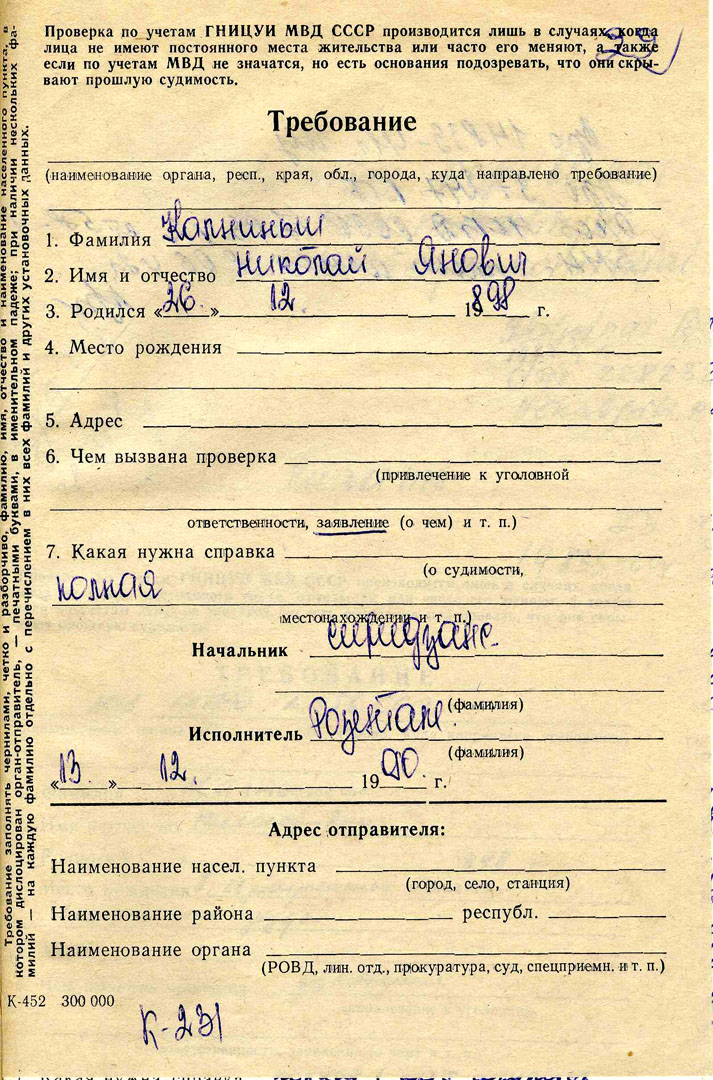 Проверка по учетам ГНИЦУИ МВД СССР производится лишь в случаях, когда
лица не имеют постоянного места жительства или часто его меняют, а также
если по учетам МВД не значатся, но есть основания подозревать, что они скры-
вают прошлую судимость.
Требование
(наименование органа, респ., края, обл., города, куда направлено требование)
1. Фамилия Калниньш
2. Имя и отчество Николай Янович
3. Родился «26.» 12. 1898 г.
4. Место рождения
5. Адрес
6. Чем вызвана проверка
(привлечение к уголовной
ответственности, заявление (о чем) и т. п.)
7. Какая нужна справка
(о судимости,
полная
местонахождении и т. п.)
Начальник
(фамилия)
Исполнитель Розентале
(фамилия)
«13.» 12. 1990. г.
Адрес отправителя:
Наименование насел. пункта
(город, село, станция)
Наименование района республ.
Наименование органа
(РОВД, лин. отд., прокуратура, суд, спецприемн. и т. п.)
К-452 300 000
К-231
Требование заполнять чернилами, четко и разборчиво, фамилию, имя, отчество и наименование населенного пункта, в
котором дислоцирован орган-отправитель, — печатными буквами, в именительном падеже; при наличии нескольких фа-
милий — на каждую фамилию отдельно с перечислением в них всех фамилий и других установочных данных.